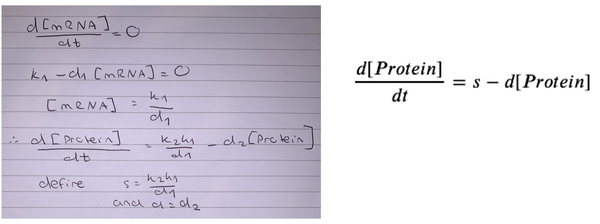 d[mRNA]/dt = 0
k1 - d1 [mRNA] = 0
[mRNA] = k1/d1
∴ d[Protein]/dt = k2k1/d1 - d2[Protein]
define s = k2k1/d1
and d = d2
d[Protein]/dt = s − d[Protein]